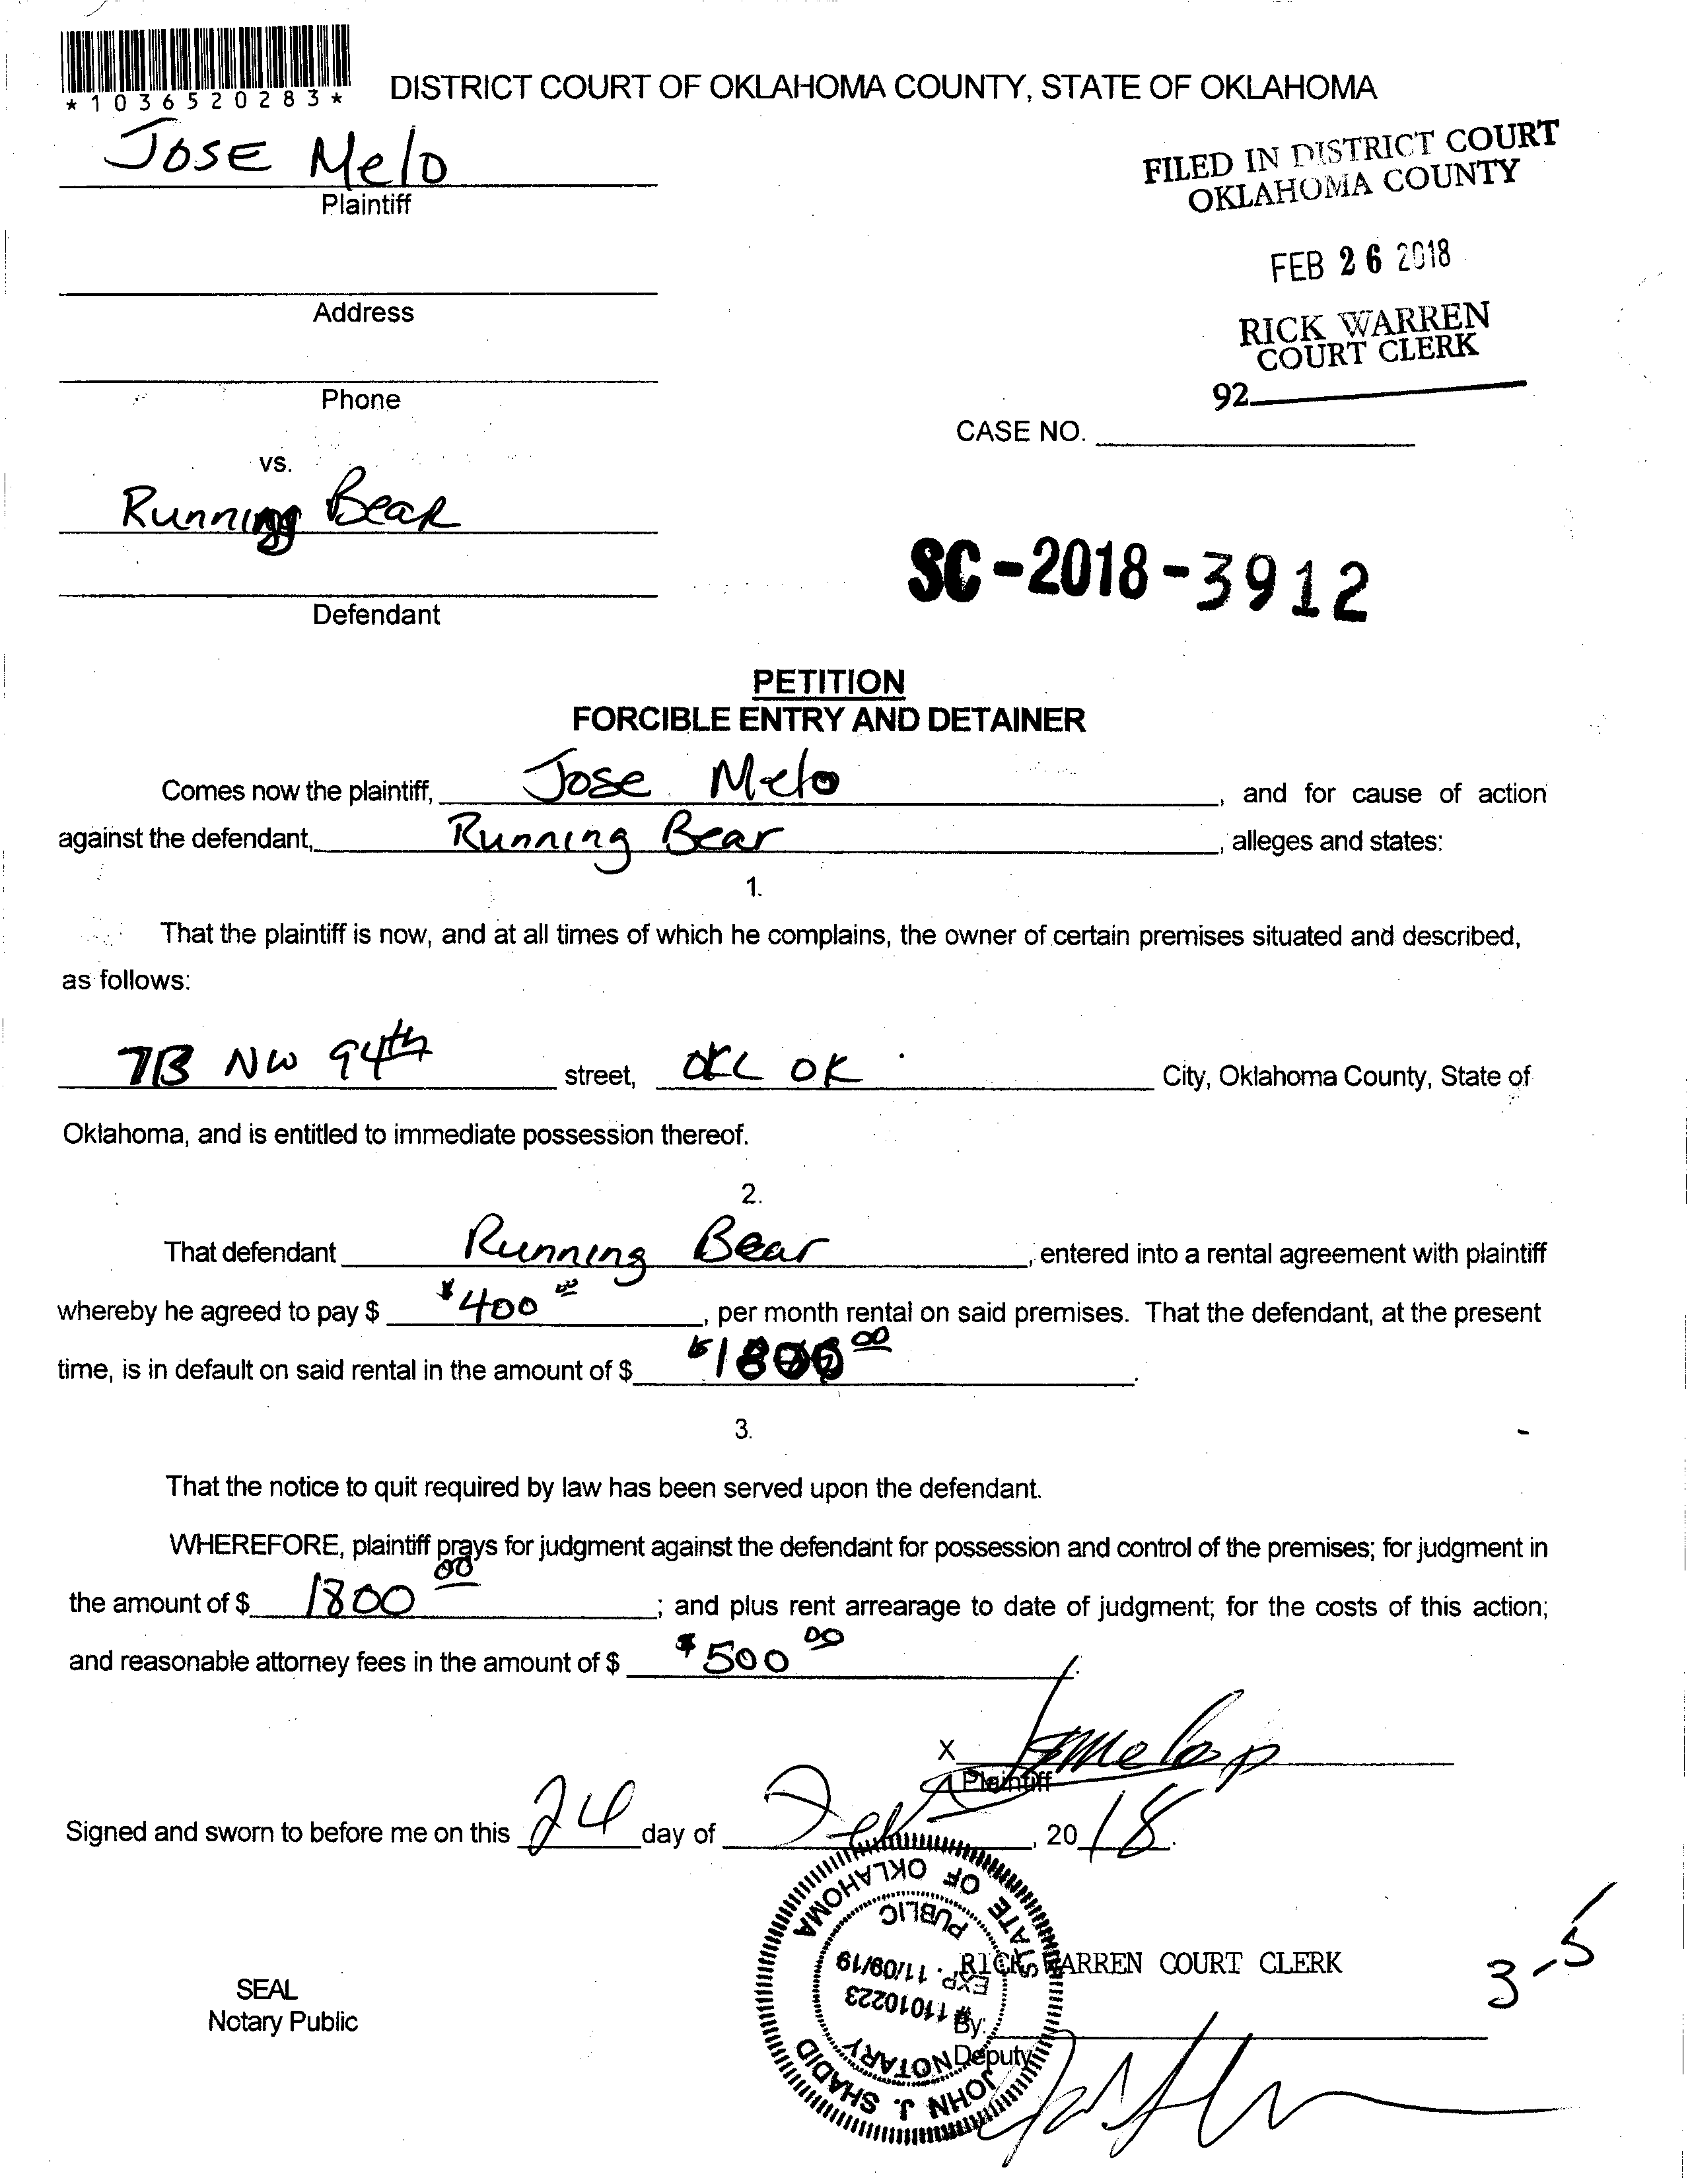 *1036520283*
DISTRICT COURT OF OKLAHOMA COUNTY, STATE OF OKLAHOMA
JOSE Melo
Plaintiff
FILED IN DISTRICT COURT
OKLAHOMA COUNTY
FEB 26 2018
RICK WARREN
COURT CLERK
92
Address
Phone
CASE NO.
vs.
Running Bear
SC-2018-3912
Defendant
PETITION
FORCIBLE ENTRY AND DETAINER
Comes now the plaintiff, Jose Melo, and for cause of action
against the defendant, Running Bear, alleges and states:
1.
That the plaintiff is now, and at all times of which he complains, the owner of certain premises situated and described,
as follows:
NW 94th street, OKC OK City, Oklahoma County, State of
Oklahoma, and is entitled to immediate possession thereof.
2.
That defendant Running Bear, entered into a rental agreement with plaintiff
whereby he agreed to pay $ $400 00, per month rental on said premises. That the defendant, at the present
time, is in default on said rental in the amount of $ $1800 00.
3.
That the notice to quit required by law has been served upon the defendant.
WHEREFORE, plaintiff prays for judgment against the defendant for possession and control of the premises; for judgment in
the amount of $ 1800 00; and plus rent arrearage to date of judgment; for the costs of this action;
and reasonable attorney fees in the amount of $ $500 00.
X
Plaintiff
Signed and sworn to before me on this 24 day of Feb, 2018.
STATE OF OKLAHOMA
PUBLIC
EXP. 11/09/19
# 11010223
NOTARY
JOHN J. SHADID
RICK WARREN COURT CLERK
3-5
SEAL
Notary Public
By:
Deputy